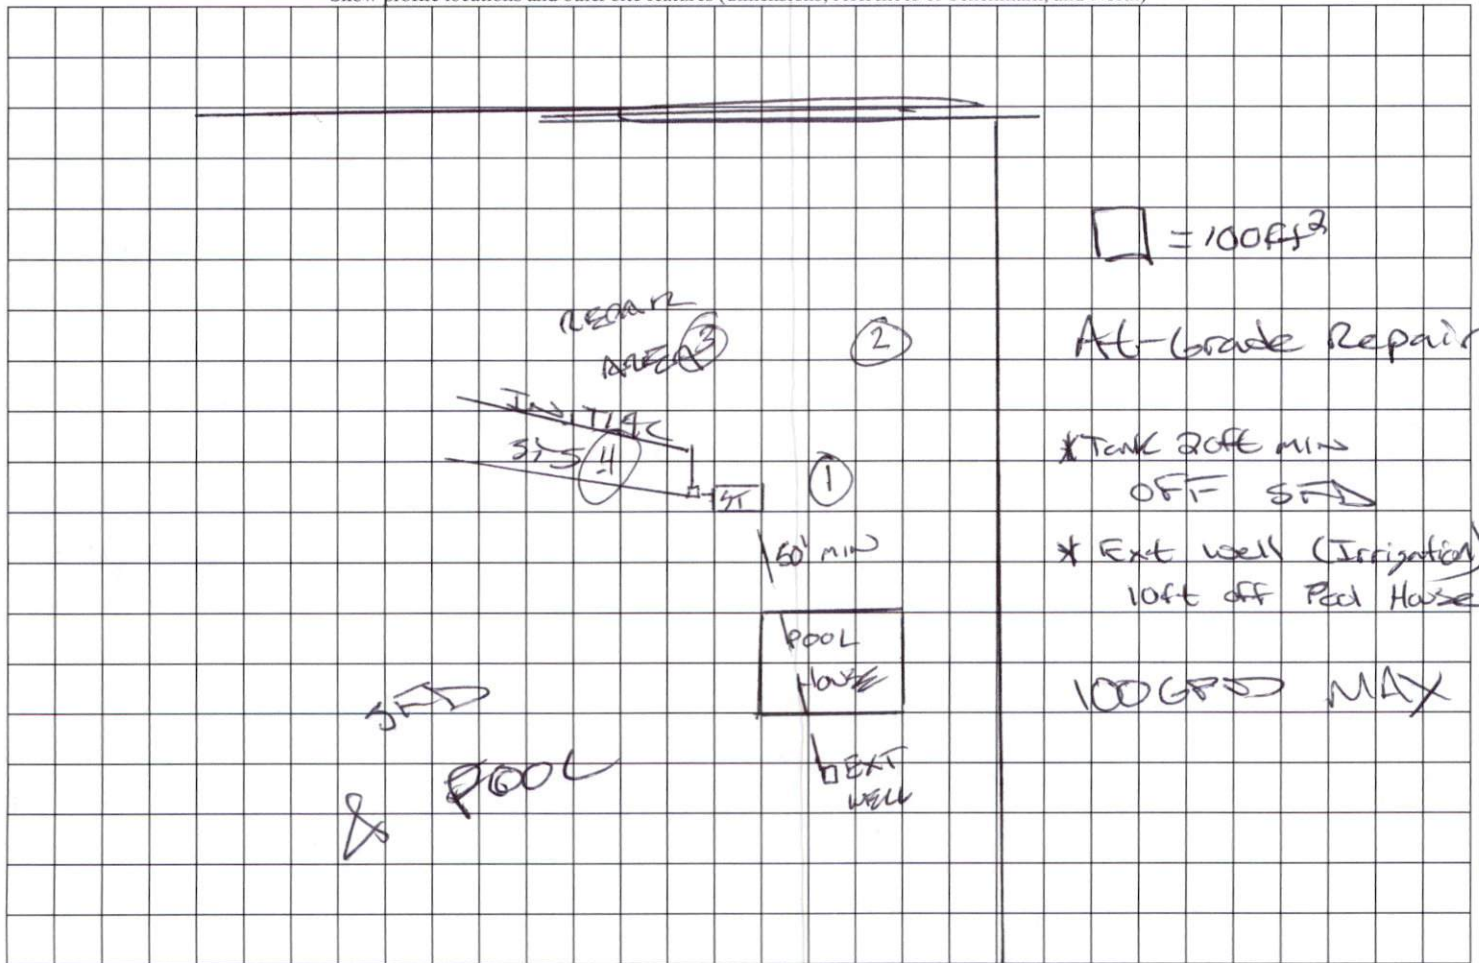 = 100ft²
REPAIR
AREA 3
2
At-Grade Repair
INITIAL
SYS 4
1
ST
*Tank 20ft MIN
OFF SFD
50' MIN
* Ext well (Irrigation)
10ft off Pool House
POOL
House
100GPD MAX
SFD
& POOL
EXT
WELL